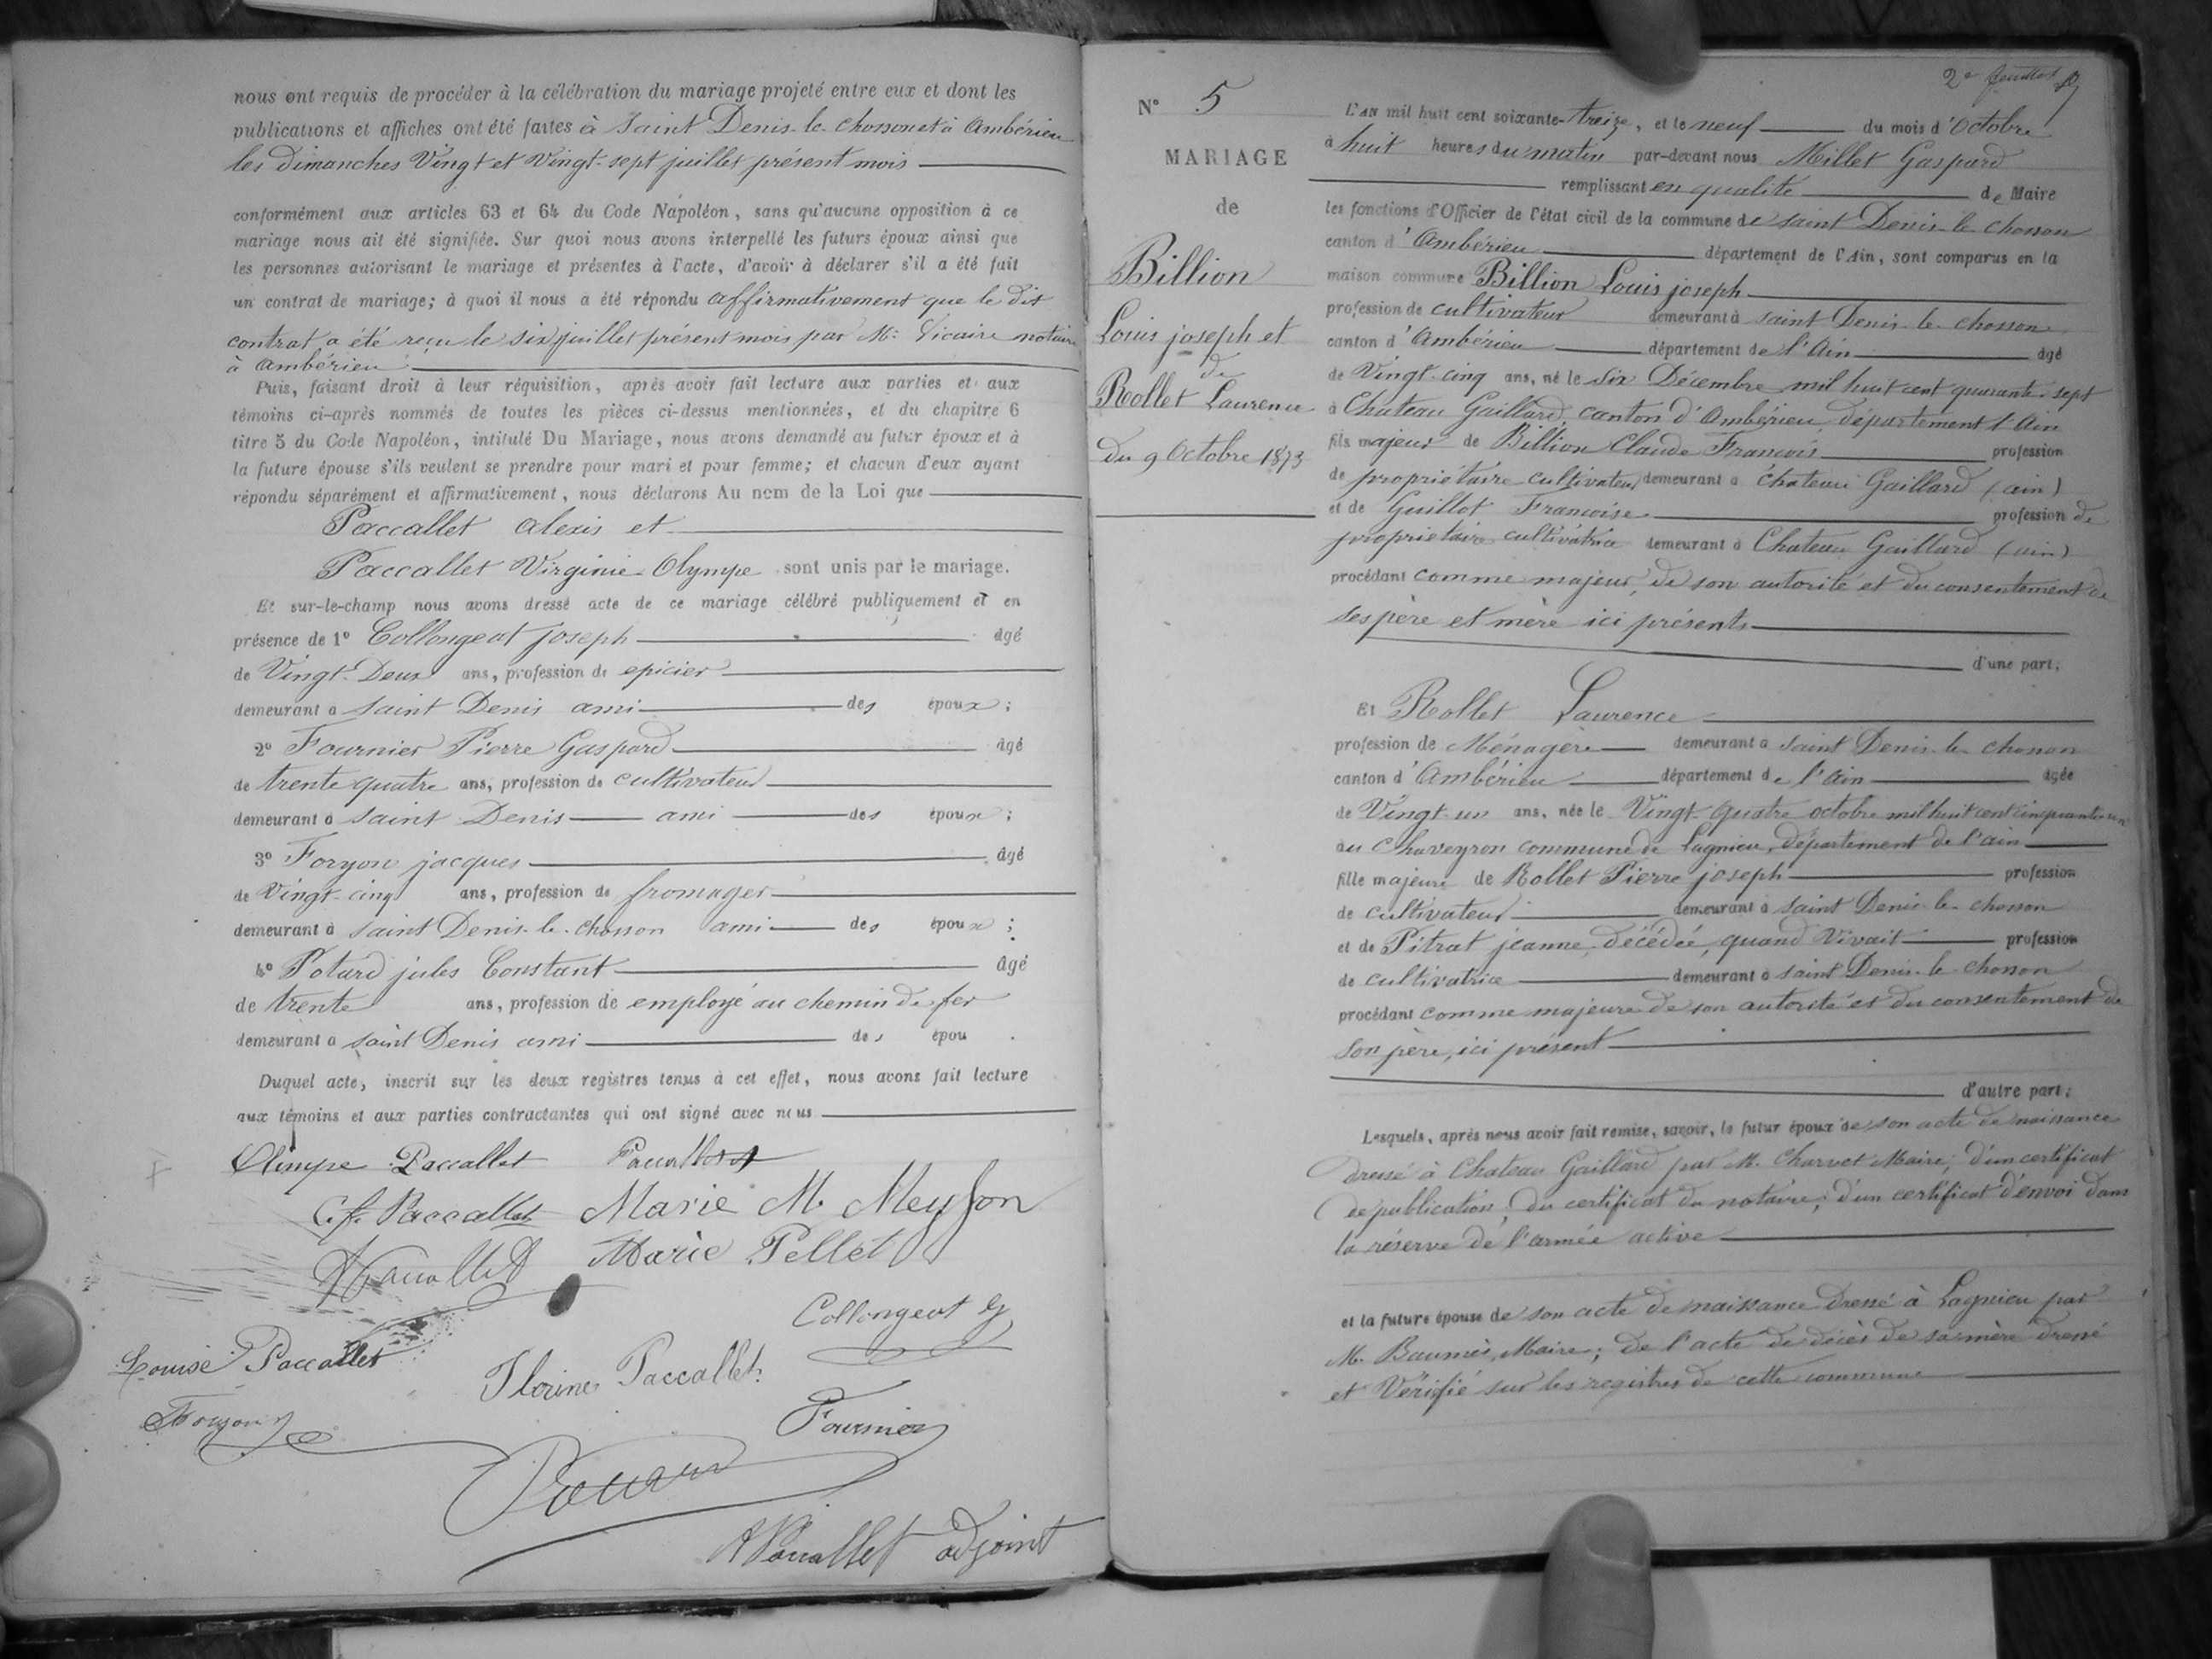 nous ont requis de procéder à la célébration du mariage projeté entre eux et dont les
publications et affiches ont été faites à Saint Denis-le-Chosson et à Ambérieu
les Dimanches Vingt et Vingt-sept juillet présent mois
conformément aux articles 63 et 64 du Code Napoléon, sans qu'aucune opposition à ce
mariage nous ait été signifiée. Sur quoi nous avons interpellé les futurs époux ainsi que
les personnes autorisant le mariage et présentes à l'acte, d'avoir à déclarer s'il a été fait
un contrat de mariage; à quoi il nous a été répondu affirmativement que le dit
contrat a été reçu le six juillet présent mois par Me Vicaire notaire
à Ambérieu
Puis, faisant droit à leur réquisition, après avoir fait lecture aux parties et aux
témoins ci-après nommés de toutes les pièces ci-dessus mentionnées, et du chapitre 6
titre 5 du Code Napoléon, intitulé Du Mariage, nous avons demandé au futur époux et à
la future épouse s'ils veulent se prendre pour mari et pour femme; et chacun d'eux ayant
répondu séparément et affirmativement, nous déclarons Au nom de la Loi que
Paccallet alexis et
Paccallet Virginie Olympe sont unis par le mariage.
Et sur-le-champ nous avons dressé acte de ce mariage célébré publiquement et en
présence de 1º Collongeat joseph âgé
de Vingt-Deux ans, profession de epicier
demeurant à saint Denis ami des époux;
2º Fournier Pierre Gaspard âgé
de trente quatre ans, profession de cultivateur
demeurant à saint Denis ami des époux;
3º Foryon jacques âgé
de Vingt-cinq ans, profession de fromager
demeurant à saint Denis-le-chosson ami des époux;
4º Potard jules Constant âgé
de trente ans, profession de employé au chemin de fer
demeurant à saint Denis ami des épou .
Duquel acte, inscrit sur les deux registres tenus à cet effet, nous avons fait lecture
aux témoins et aux parties contractantes qui ont signé avec nous
Olimpe Paccallet
C. f. Paccallet Marie M. Meysson
Marie Pellet
Collongeat
Louise Paccallet
Florine Paccallet
Foryon
Fournier
Paccallet adjoint
Nº 5
MARIAGE
de
Billion
Louis joseph et
de
Rollet Laurence
Du 9 Octobre 1873
L'AN mil huit cent soixante-treize, et le neuf du mois d'Octobre
à huit heures du matin par-devant nous Millet Gaspard
remplissant en qualité de Maire
les fonctions d'Officier de l'état civil de la commune de saint Denis-le-chosson
canton d'Ambérieu département de l'Ain, sont comparus en la
maison commune Billion Louis joseph
profession de cultivateur demeurant à saint Denis-le-chosson
canton d'Ambérieu département de l'Ain âgé
de Vingt-cinq ans, né le six Décembre mil huit cent quarante-sept
à Chateau Gaillard, canton d'Ambérieu, département l'Ain
fils majeur de Billion Claude François profession
de propriétaire cultivateur demeurant à Chateau Gaillard (ain)
et de Guillot Françoise profession de
propriétaire cultivatrice demeurant à Chateau Gaillard (ain)
procédant comme majeur, de son autorité et du consentement de
ses père et mère ici présents
d'une part;
Et Rollet Laurence
profession de Ménagère demeurant à saint Denis-le-chosson
canton d'Ambérieu département de l'Ain âgée
de Vingt-un ans, née le Vingt-quatre octobre mil huit cent cinquante-un
au Chaveyron commune de Lagnieu, département de l'ain
fille majeure de Rollet Pierre joseph profession
de cultivateur demeurant à saint Denis-le-chosson
et de Pitrat jeanne, décédée, quand vivait profession
de cultivatrice demeurant à saint Denis-le-chosson
procédant comme majeure de son autorité et du consentement de
son père, ici présent
d'autre part;
Lesquels, après nous avoir fait remise, savoir, le futur époux de son acte de naissance
dressé à Chateau Gaillard par M. Charvet Maire; d'un certificat
de publication; du certificat du notaire; d'un certificat d'envoi dans
la réserve de l'armée active
et la future épouse de son acte de naissance dressé à Lagnieu par
M. Maire; de l'acte de décès de sa mère dressé
et Vérifié sur les registres de cette commune